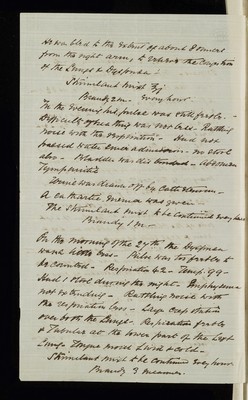 He was bled to the extent of about 8 ounces
from the right arm, to relieve the Congestion
of the Lungs & Dyspnoea :
Stimulant mixt ℥j
Brandy 2 m. Every hour
In the Evening his pulse was still feeble. -
Difficulty of was not less - Rattling
noise with the respiration - Had not
passed water since admission - no stool
also - Bladder was distended - Abdomen
Tympanitic
Urine was drawn off by Catheterism -
A cathartic Enema was given -
The Stimulant mixt to be continued every hour
Brandy 1 m -
On the morning of the 27th the Dyspnoea
was less - Pulse was too feeble to
be counted - Respiration 62 - Temp. 99 -
Had 1 stool during the night - Emphysema
not extending - Rattling noise with
the respiration less - Large Crepitation
over both the Lungs - Respiration feeble
& Tubular at the lower part of the Left
Lung - Tongue moist & cold -
Stimulant mixt to be continued every hour
Brandy 3 measures -